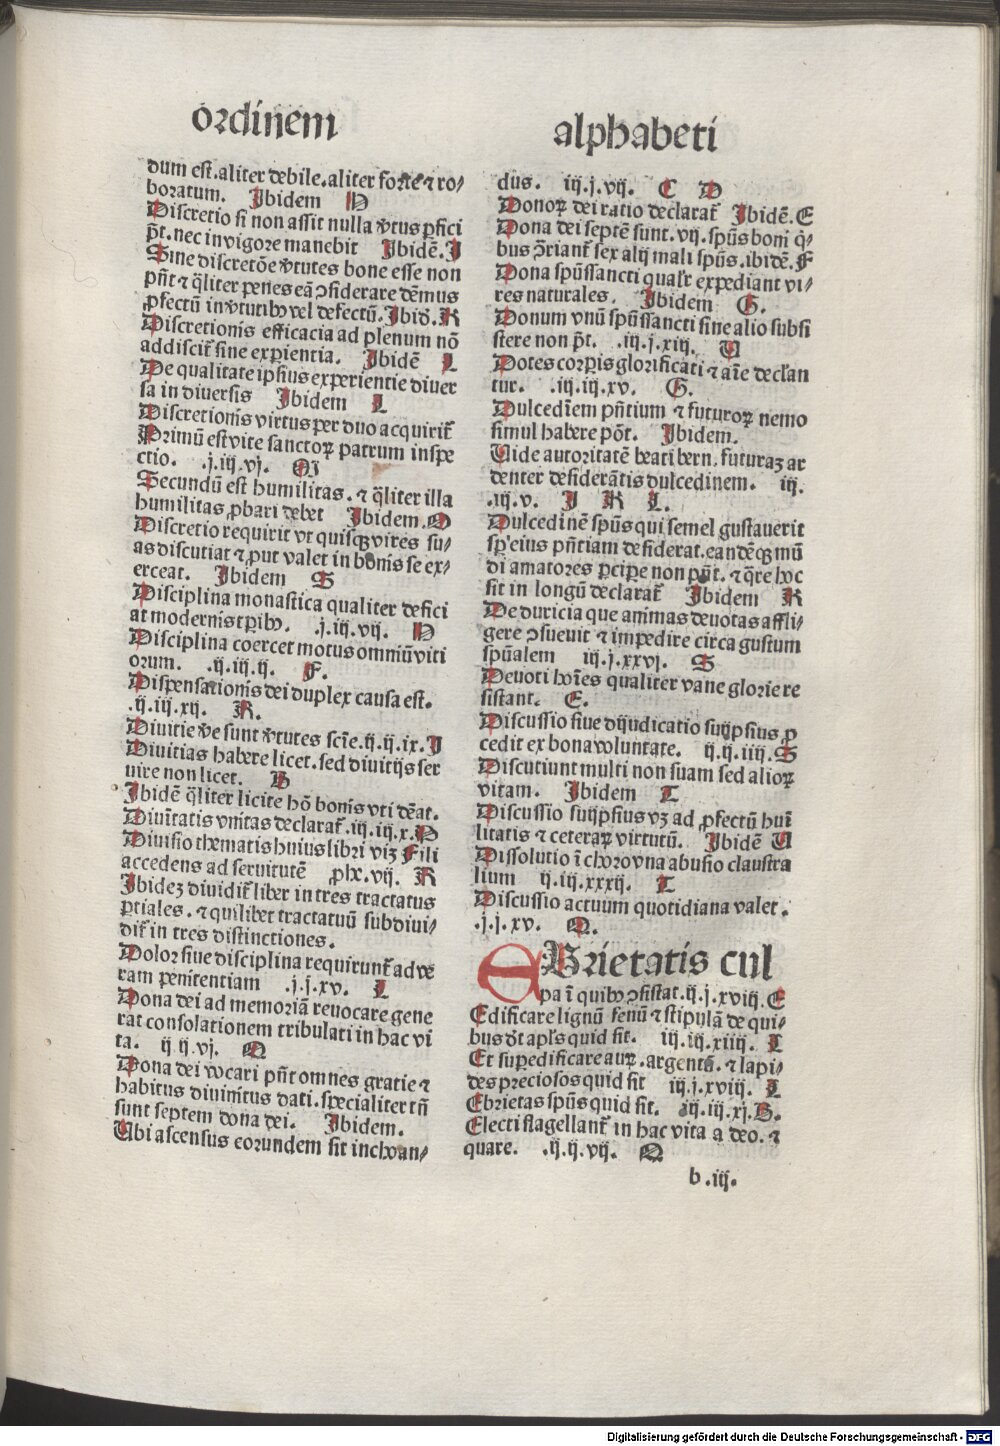 ordinem
alphabeti
dum est.aliter debile.aliter forte ⁊ ro/
boratum. Ibidem H
Discretio si non assit nulla v̓tus ꝑfici
pt̄.nec in vigore manebit Ibidē.I
Sine discretōe v̓tutes bone esse non
pn̄t ⁊ q̄liter penes eā ꝯsiderare dēmus
ꝓfectū in v̓tutibꝰ vel defectū.Ibid̄.K
Discretionis efficacia ad plenum nō
addiscit̄ sine experientia. Ibidē L
De qualitate ipsius experientie diuer
sa in diuersis Ibidem L
Discretionis virtus per duo acquirit̄
Primū est vite sanctoꝝ patrum inspe
ctio. .j.iij.vj. M
Secundū est humilitas.⁊ q̄liter illa
humilitas ꝓbari debet Ibidem.O
Discretio requirit vt quisqꝫ vires su/
as discutiat ⁊ ꝓut valet in bonis se ex/
erceat. Ibidem S
Disciplina monastica qualiter defici
at modernis tꝑibꝰ. .j.iij.vij. H
Disciplina coercet motus omniū viti
orum. .ij.iij.ij. F.
Dispensationis dei duplex causa est.
.ij.iij.xij. K.
Diuitie v̓e sunt v̓tutes scīe.ij.ij.ix.I
Diuitias habere licet.sed diuitijs ser
uire non licet. B
Ibidē q̄liter licite hō bonis vti dēat.
Diuītatis vnitas declarat̄.iij.iij.x.P
Diuisio thematis huius libri viꝫ Fili
accedens ad seruitutē ꝓlx.vij. K
Ibideꝫ diuidit̄ liber in tres tractatus
ꝑtiales.⁊ quilibet tractatuū subdiui/
dit̄ in tres distinctiones.
Dolor siue disciplina requirunt̄ ad ve
ram penitentiam .j.j.xv. L
Dona dei ad memoriā reuocare gene
rat consolationem tribulati in hac vi
ta. ij ij.vj. Q
Dona dei vocari pn̄t omnes gratie ⁊
habitus diuinitus dati.specialiter tn̄
sunt septem dona dei. Ibidem.
Ubi ascensus eorundem sit inchoan/
dus. iij.j.vij. C D
Donoꝝ dei ratio declarat̄ Ibidē.E
Dona dei septē sunt.vij.spūs boni q̓/
bus ꝯ̄riant̄ sex alij mali spūs.ibidē.F
Dona spūssancti qualr̄ expediant vi/
res naturales. Ibidem G.
Donum vnū spūssancti sine alio subsi
stere non pt̄. .iij.j.xiij. U
Dotes corꝑis glorificati ⁊ aīe declan
tur. .iij.iij.xv. G.
Dulcedīem pn̄tium ⁊ futuroꝝ nemo
simul habere pōt. Ibidem.
Uide autoritatē beati bern.futuraꝫ ar
denter desiderātis dulcedinem. iij.
.iij.v. I K L.
Dulcedinē spūs qui semel gustauerit
sꝑ eius pn̄tiam desiderat.eandēqꝫ mū
di amatores ꝑciꝑe non pn̄t.⁊ q̄re hoc
sit in longū declarat̄ Ibidem K
De duricia que animas deuotas affli/
gere ꝯsueuit ⁊ impedire circa gustum
spūalem iij.j.xxvj. S
Deuoti hoīes qualiter vane glorie re
sistant. E.
Discussio siue dijudicatio suijpsius ꝓ
cedit ex bona voluntate. ij.ij.iiij.S
Discutiunt multi non suam sed alioꝝ
vitam. Ibidem T
Discussio suijpsius vꝫ ad ꝓfectū huī
litatis ⁊ ceteraꝝ virtutū. Ibidē U
Dissolutio ī choro vna abusio claustra
lium ij.iij.xxxij. T
Discussio actuum quotidiana valet.
.j.j.xv. M.
EBrietatis cul
pa ī quibꝰ ꝯsistat.ij.j.xviij.E
Edificare lignū fenū ⁊ stipulā de qui/
bus dt̄ apl̄s quid sit. iij.iij.xiiij. T
Et suꝑedificare auꝝ.argentū.⁊ lapi/
des preciosos quid sit iij.j.xviij. L
Ebrietas spūs quid sit. iij.iij.xj.B.
Electi flagellant̄ in hac vita a deo.⁊
quare. .ij.ij.vij. Q
b.iij.
Digitalisierung gefördert durch die Deutsche Forschungsgemeinschaft - DFG